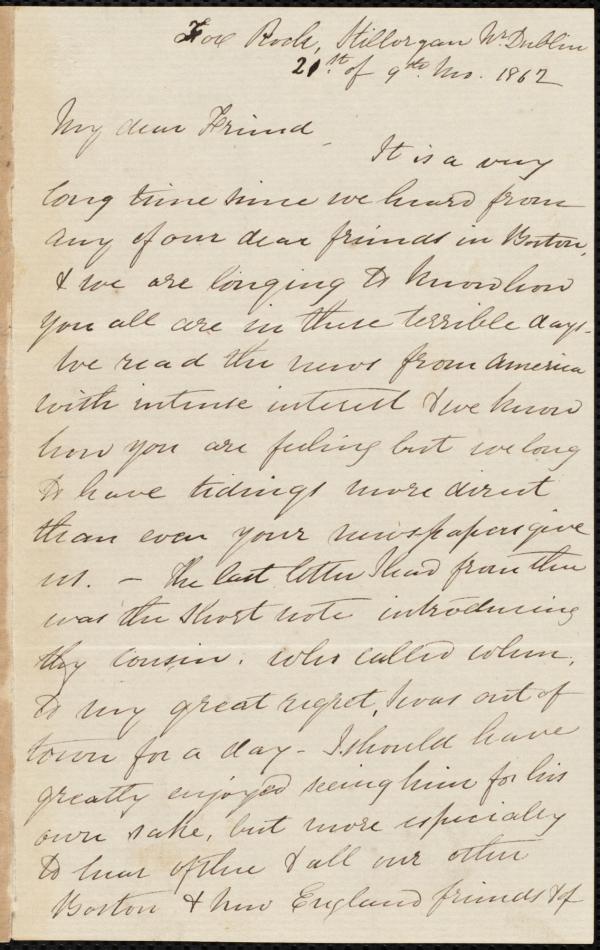 Fox Rock, Stillorgan Nr. Dublin
21st of 9th Mo. 1862
My dear Friend,
It is a very
long time since we heard from
any of our dear friends in Boston,
& we are longing to know how
you all are in these terrible days.
We read the news from America
with intense interest & we know
how you are feeling but we long
to have tidings more direct
than even your newspapers give
us. — The last letter I had from thee
was the short note introducing
thy cousin. who called when,
to my great regret, I was out of
town for a day - I should have
greatly enjoyed seeing him for his
own sake, but more especially
to hear of thee & all our other
Boston & New England friends & of